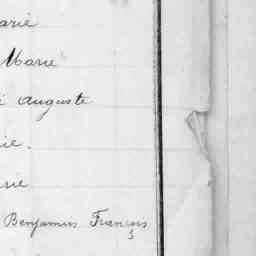 arie
Marie
Auguste
ie.
rie
Benjamin François